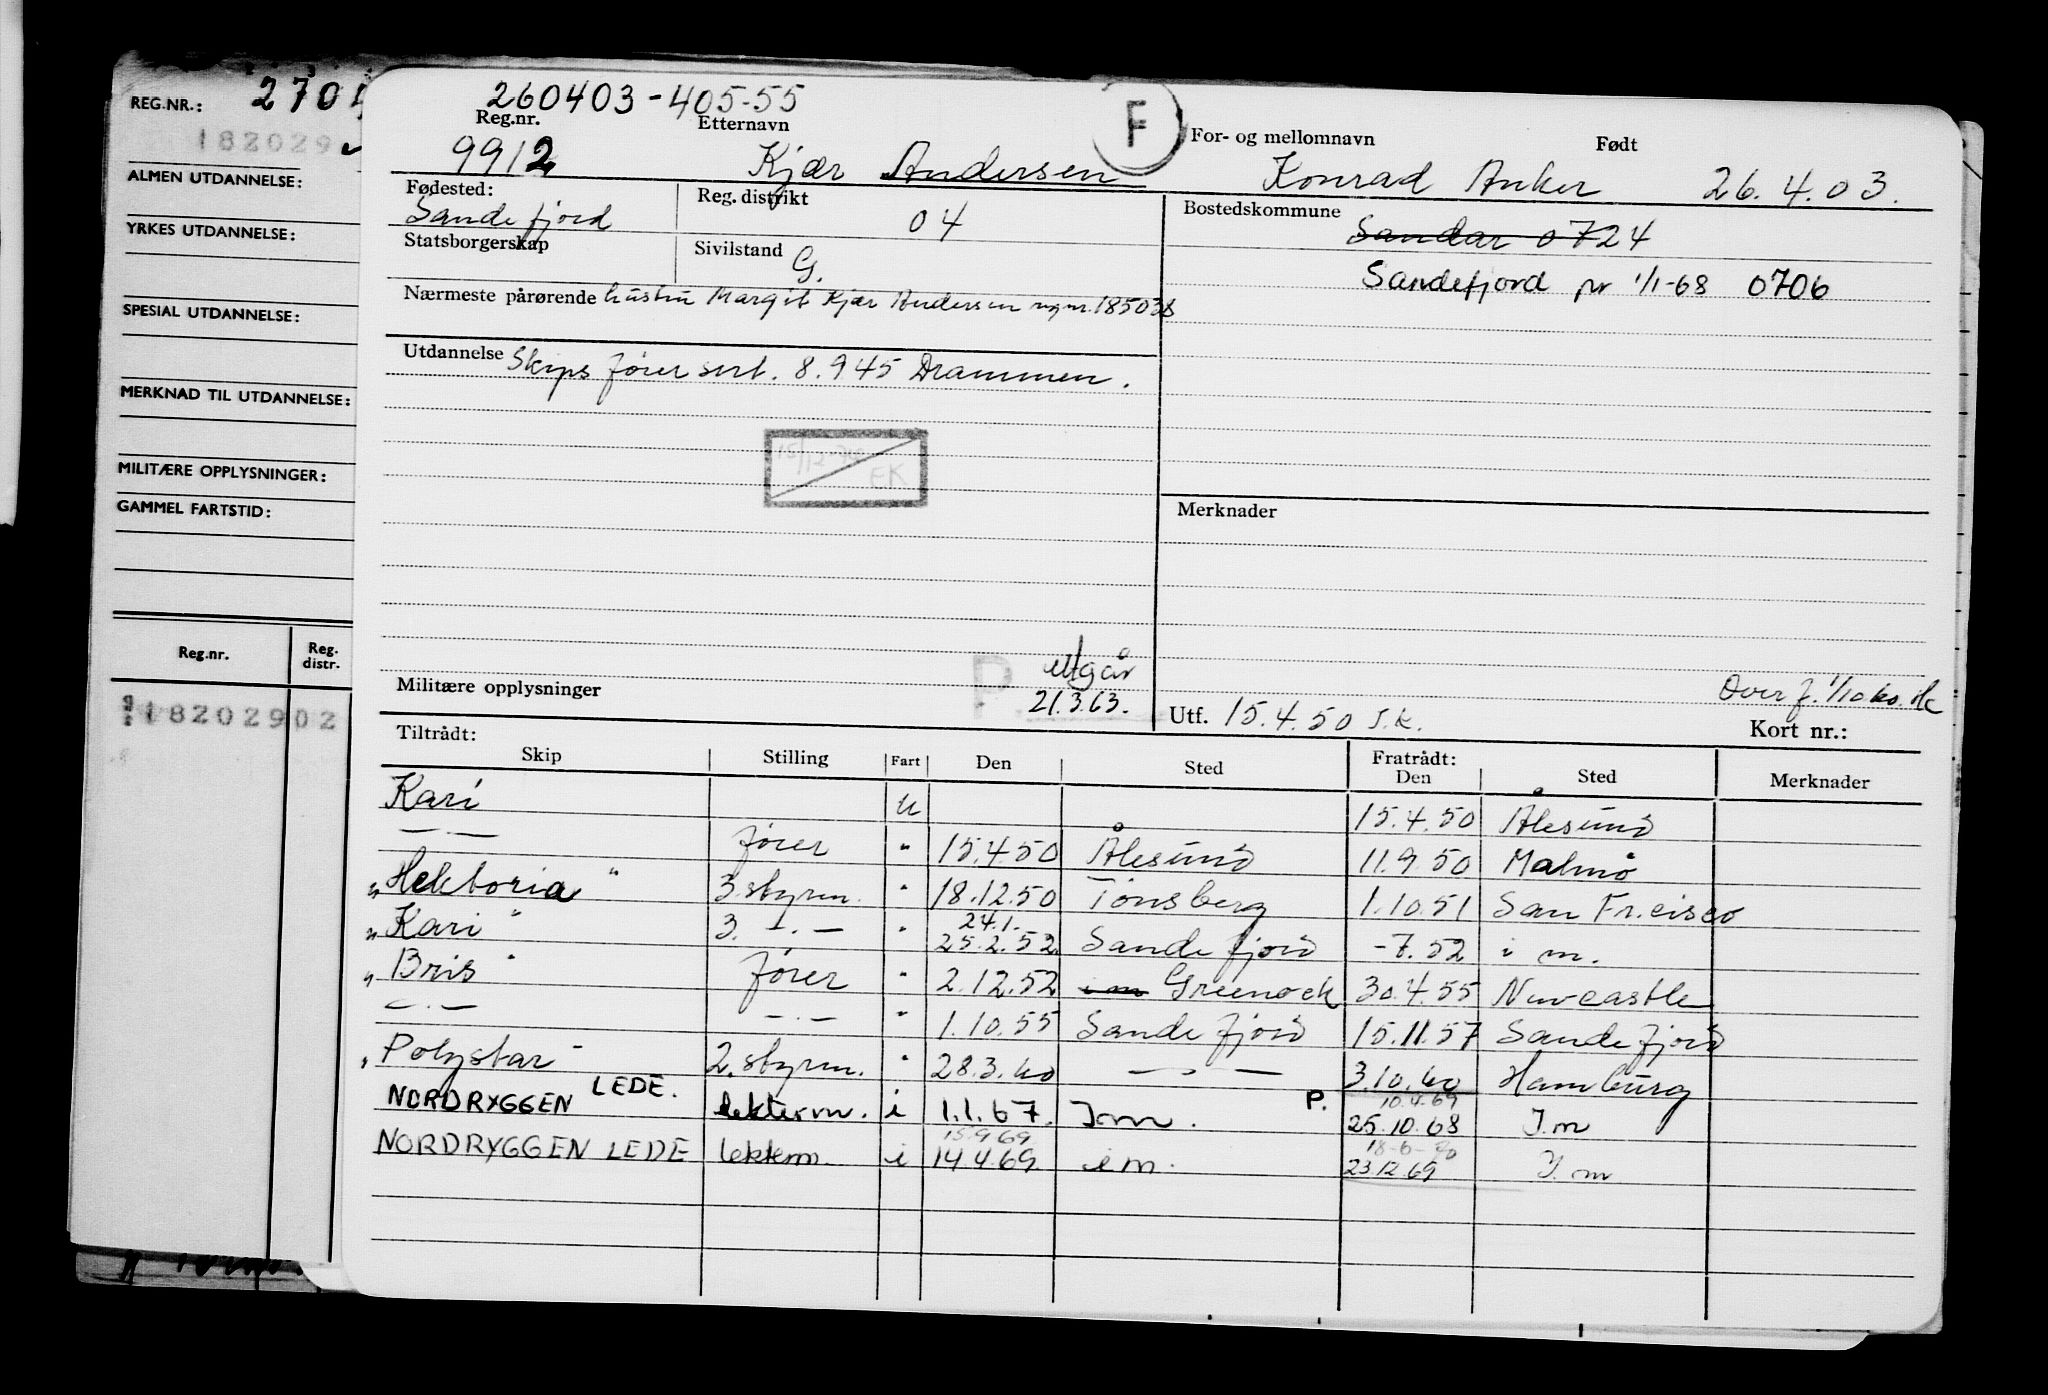 REG.NR.: 270
182029
ALMEN UTDANNELSE:
YRKES UTDANNELSE:
SPESIAL UTDANNELSE:
MERKNAD TIL UTDANNELSE:
MILITÆRE OPPLYSNINGER:
GAMMEL FARTSTID:
Reg.nr. Reg. distr.
18202902
260403-405-55
Reg.nr. Etternavn F For- og mellomnavn Født
9912 Kjær Andersen Konrad Anker 26.4.03.
Fødested: Reg. distrikt Bostedskommune
Sandefjord 04 Sandar 0724
Statsborgerskap Sivilstand G. Sandefjord pr 1/1-68 0706
Nærmeste pårørende hustru Margit Kjær Andersen
Utdannelse Skipsfører sert. 8.945 Drammen.
15/12-
EK
Merknader
P utgår
Militære opplysninger 21.3.63.
Over f. 1/10
Utf. 15.4.50 Kort nr.:
Tiltrådt: Fratrådt:
Skip Stilling Fart Den Sted Den Sted Merknader
Kari u 15.4.50 Ålesund
— " — fører " 15.4.50 Ålesund 11.9.50 Malmø
"Hektoria" 3. styrm. " 18.12.50 Tønsberg 1.10.51 San Fr.cisco
24.1.
"Kari" 3. — " — " 25.2.52 Sandefjord -7.52 i m.
"Bris" fører " 2.12.52 i m Greenock 30.4.55 Newcastle
— " — — " — " 1.10.55 Sandefjord 15.11.57 Sandefjord
"Polystar" 2. styrm. " 28.3.60 — " — 3.10.60 Hamburg
10.4.69
NORDRYGGEN LEDE. lekterm. i 1.1.67. I m. P. 25.10.68 I.m
15.9.69 18-6-70
NORDRYGGEN LEDE lekterm. i 14.4.69 i m. 23.12.69 I. m